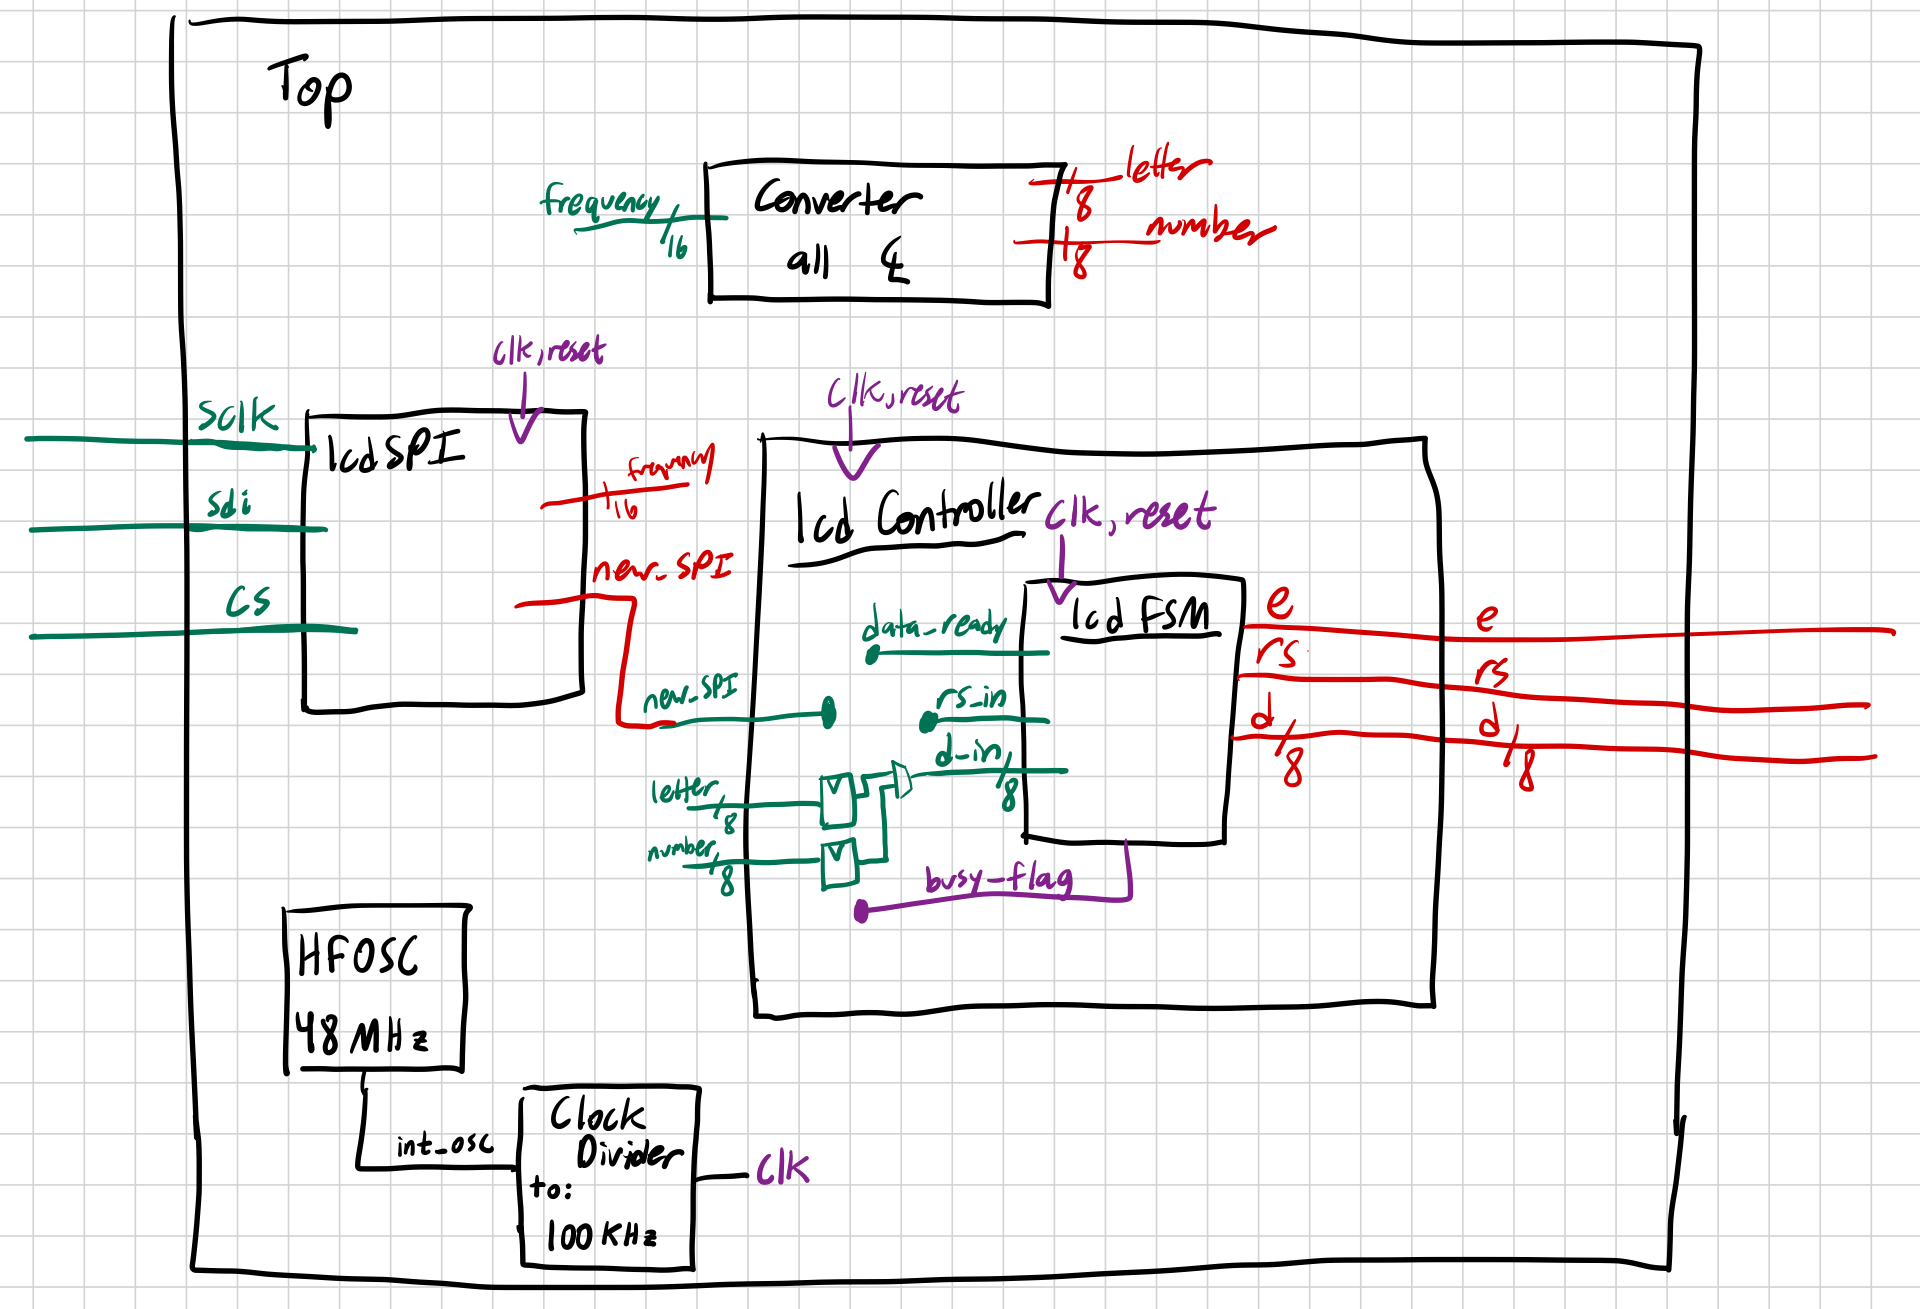 Top
frequency
16
Converter
all
letter
8
number
8
clk, reset
Sclk
sdi
CS
lcd SPI
frequency
16
new_SPI
Clk, reset
lcd Controller
Clk, reset
lcd FSM
data_ready
new_SPI
rs_in
d_in
8
letter
8
number
8
busy_flag
e
rs
d
8
e
rs
d
8
HFOSC
48 MHz
int_osc
Clock
Divider
to:
100 KHz
Clk